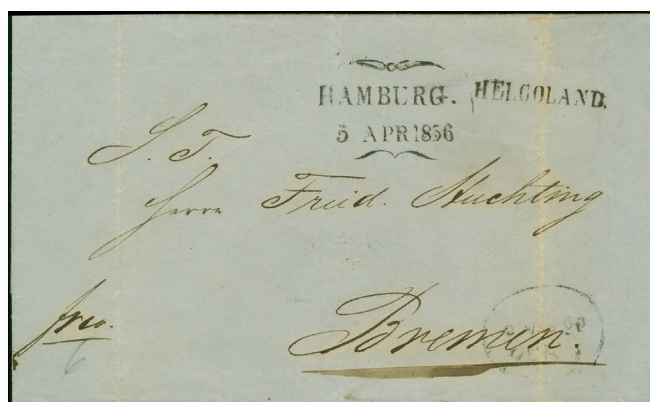 HAMBURG. HELGOLAND.
5 APR 1856
S. T.
Herrn Fried. Huchting
frco.
6
Bremen.